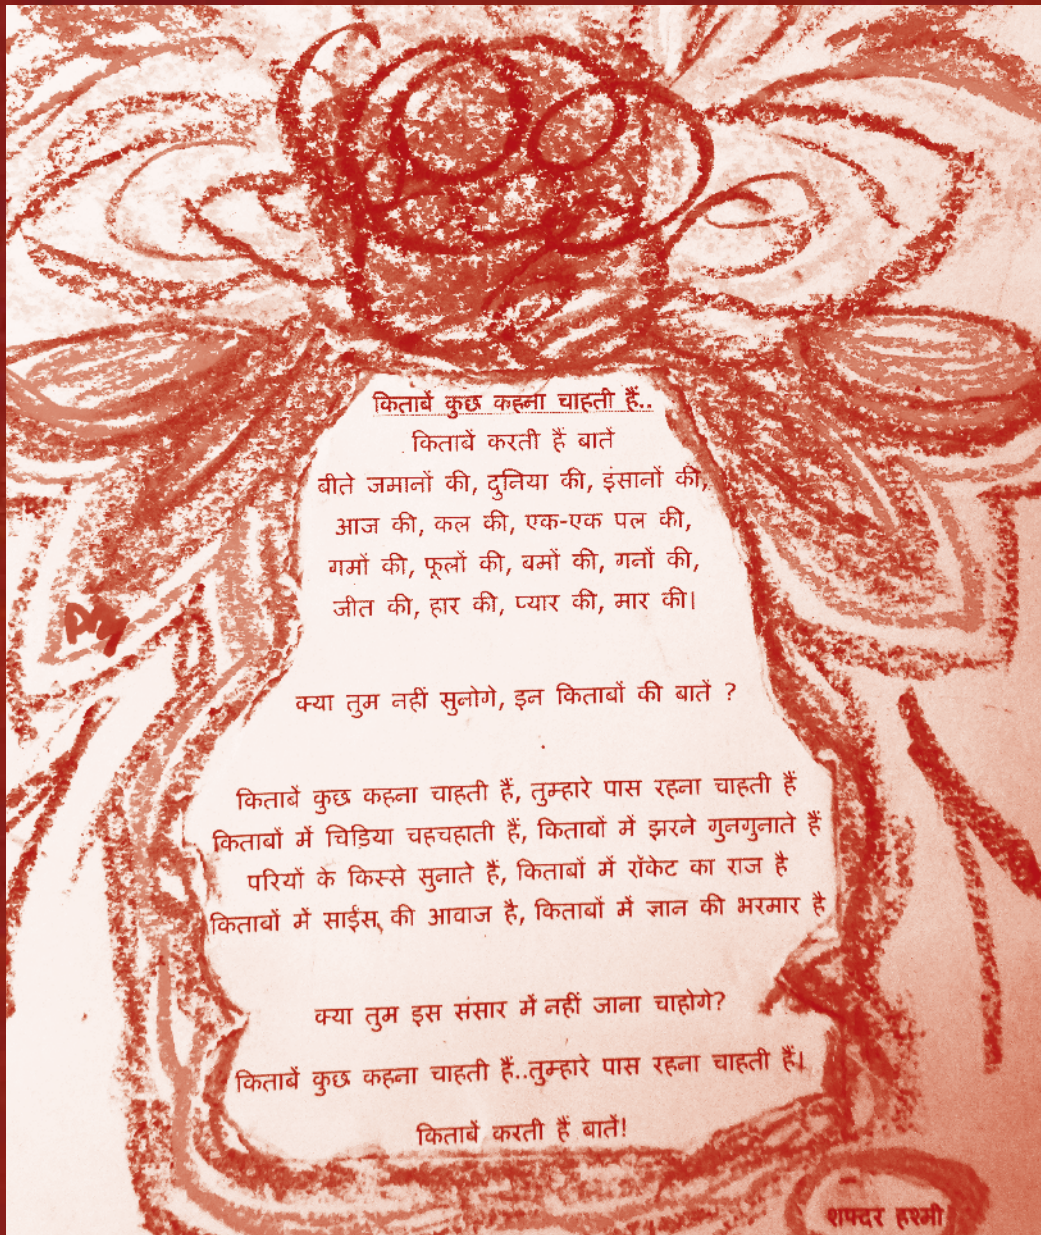 किताबें कुछ कहना चाहती हैं..
किताबें करती हैं बातें
बीते जमानों की, दुनिया की, इंसानों की,
आज की, कल की, एक-एक पल की,
गमों की, फूलों की, बमों की, गनों की,
जीत की, हार की, प्यार की, मार की।
क्या तुम नहीं सुनोगे, इन किताबों की बातें ?
किताबें कुछ कहना चाहती हैं, तुम्हारे पास रहना चाहती हैं
किताबों में चिडिया चहचहाती हैं, किताबों में झरने गुनगुनाते हैं
परियों के किस्से सुनाते हैं, किताबों में रॉकेट का राज है
किताबों में साईंस की आवाज है, किताबों में ज्ञान की भरमार है
क्या तुम इस संसार में नहीं जाना चाहोगे?
किताबें कुछ कहना चाहती हैं..तुम्हारे पास रहना चाहती हैं।
किताबें करती हैं बातें!
शफ्दर हश्मी